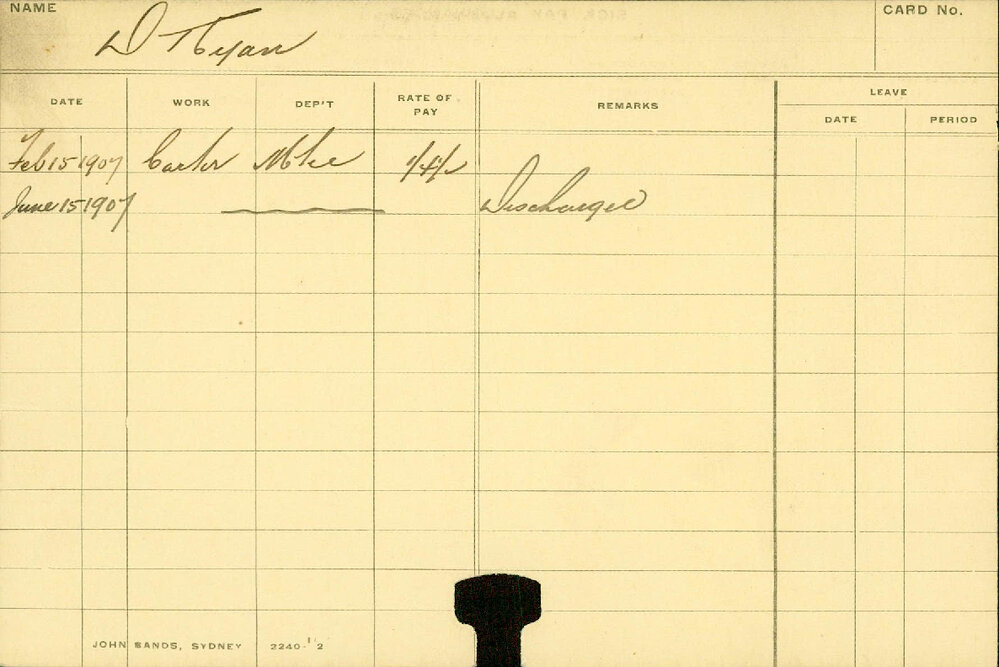 NAME
D Ryan
CARD No.
DATE WORK DEP'T RATE OF PAY REMARKS LEAVE
DATE PERIOD
Feb 15 1907 Carter Mkr
June 15 1907 Discharged
JOHN SANDS, SYDNEY 2240-1/2